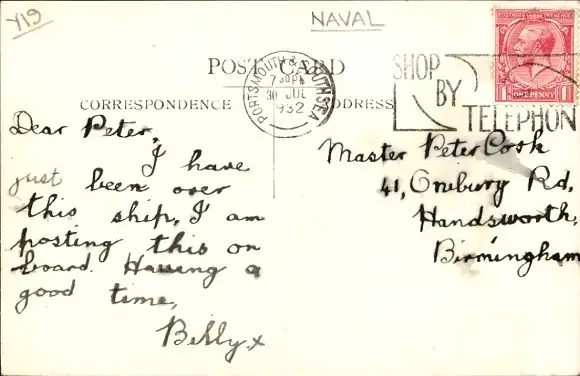 Y19
NAVAL
POST CARD
PORTSMOUTH & SOUTHSEA
30 JUL
1932
SHOP
BY
TELEPHON
ONE PENNY
CORRESPONDENCE
ADDRESS
Dear Peter,
I have
just been over
this ship. I am
posting this on
board. Having a
good time,
Billy.x
Master Peter Cook
41, Onibury Rd,
Handsworth,
Birmingham